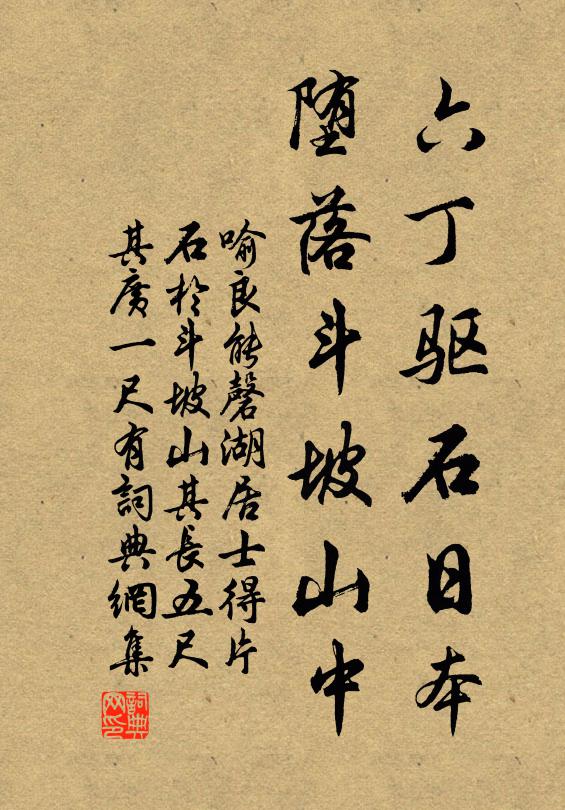 六丁驱石日本
堕落斗坡山中
喻良能磬湖居士得片
石於斗坡山其長五尺
其廣一尺有詞典網集
詞典网印